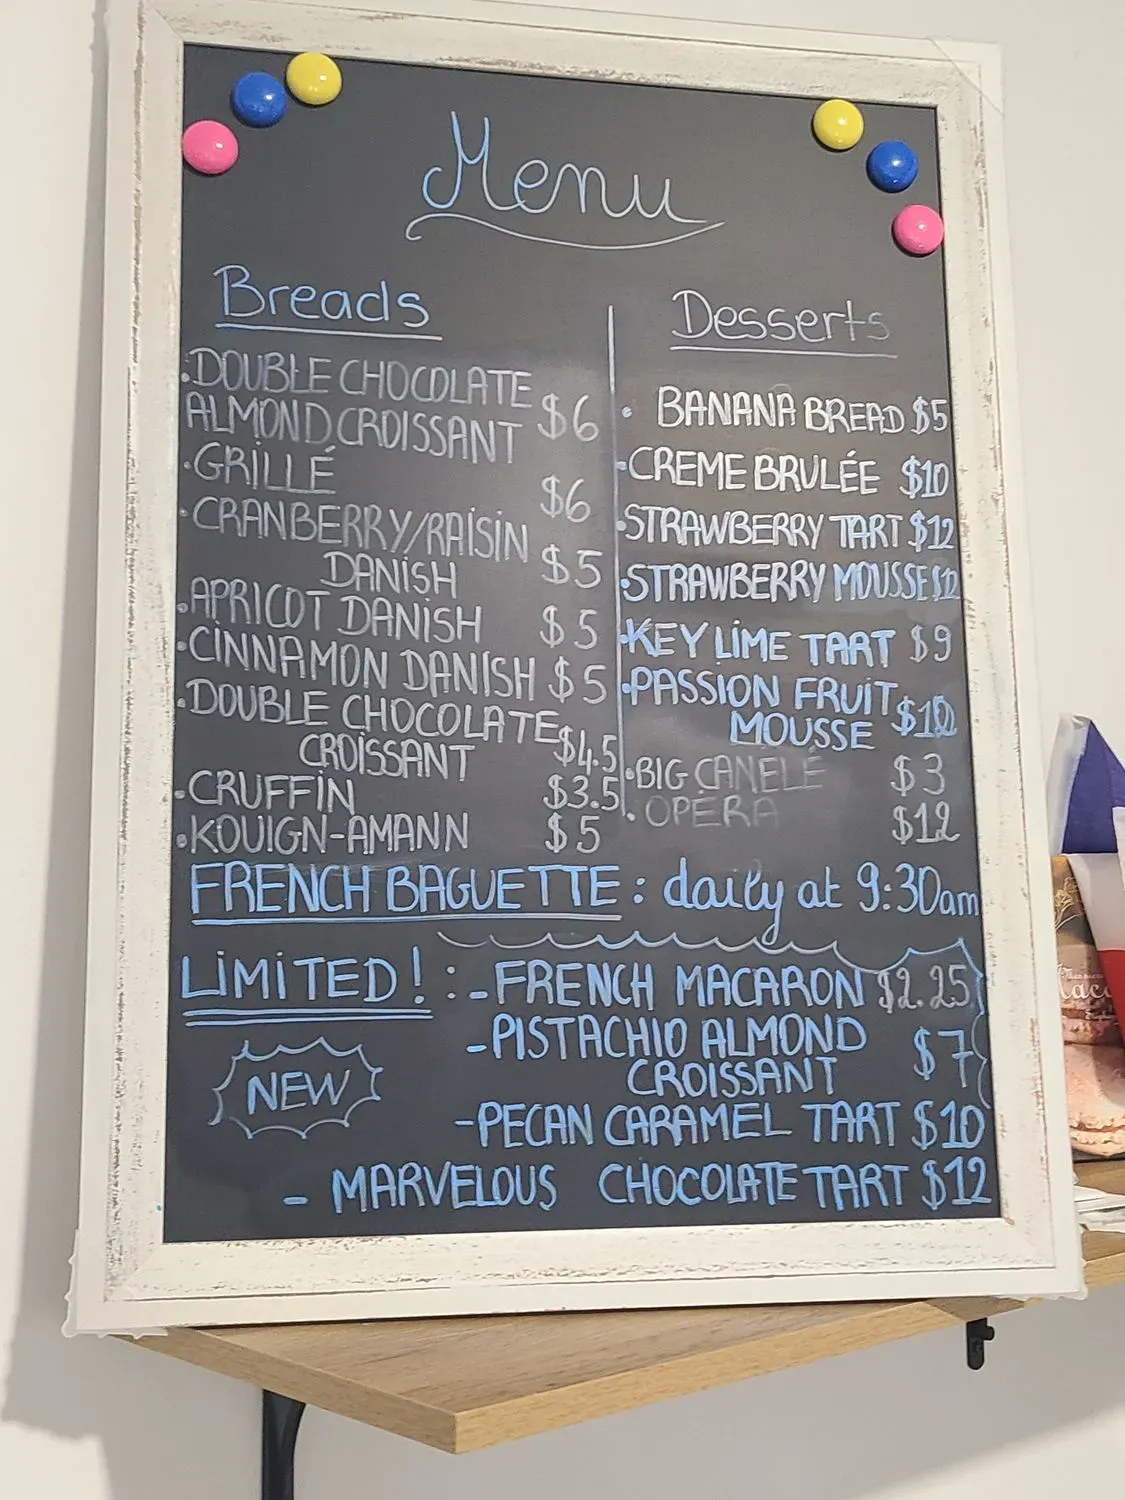 Menu
Breads
·DOUBLE CHOCOLATE
ALMOND CROISSANT $6
·GRILLÉ $6
·CRANBERRY/RAISIN
DANISH $5
·APRICOT DANISH $5
·CINNAMON DANISH $5
·DOUBLE CHOCOLATE
CROISSANT $4.5
·CRUFFIN $3.5
·KOUIGN-AMANN $5
Desserts
· BANANA BREAD $5
·CREME BRULÉE $10
·STRAWBERRY TART $12
·STRAWBERRY MOUSSE $12
·KEY LIME TART $9
·PASSION FRUIT
MOUSSE
·BIG CANELÉ $3
·OPERA $12
FRENCH BAGUETTE : daily at 9:30am
LIMITED! : -FRENCH MACARON $2.25
-PISTACHIO ALMOND
CROISSANT $7
NEW
-PECAN CARAMEL TART $10
- MARVELOUS CHOCOLATE TART $12